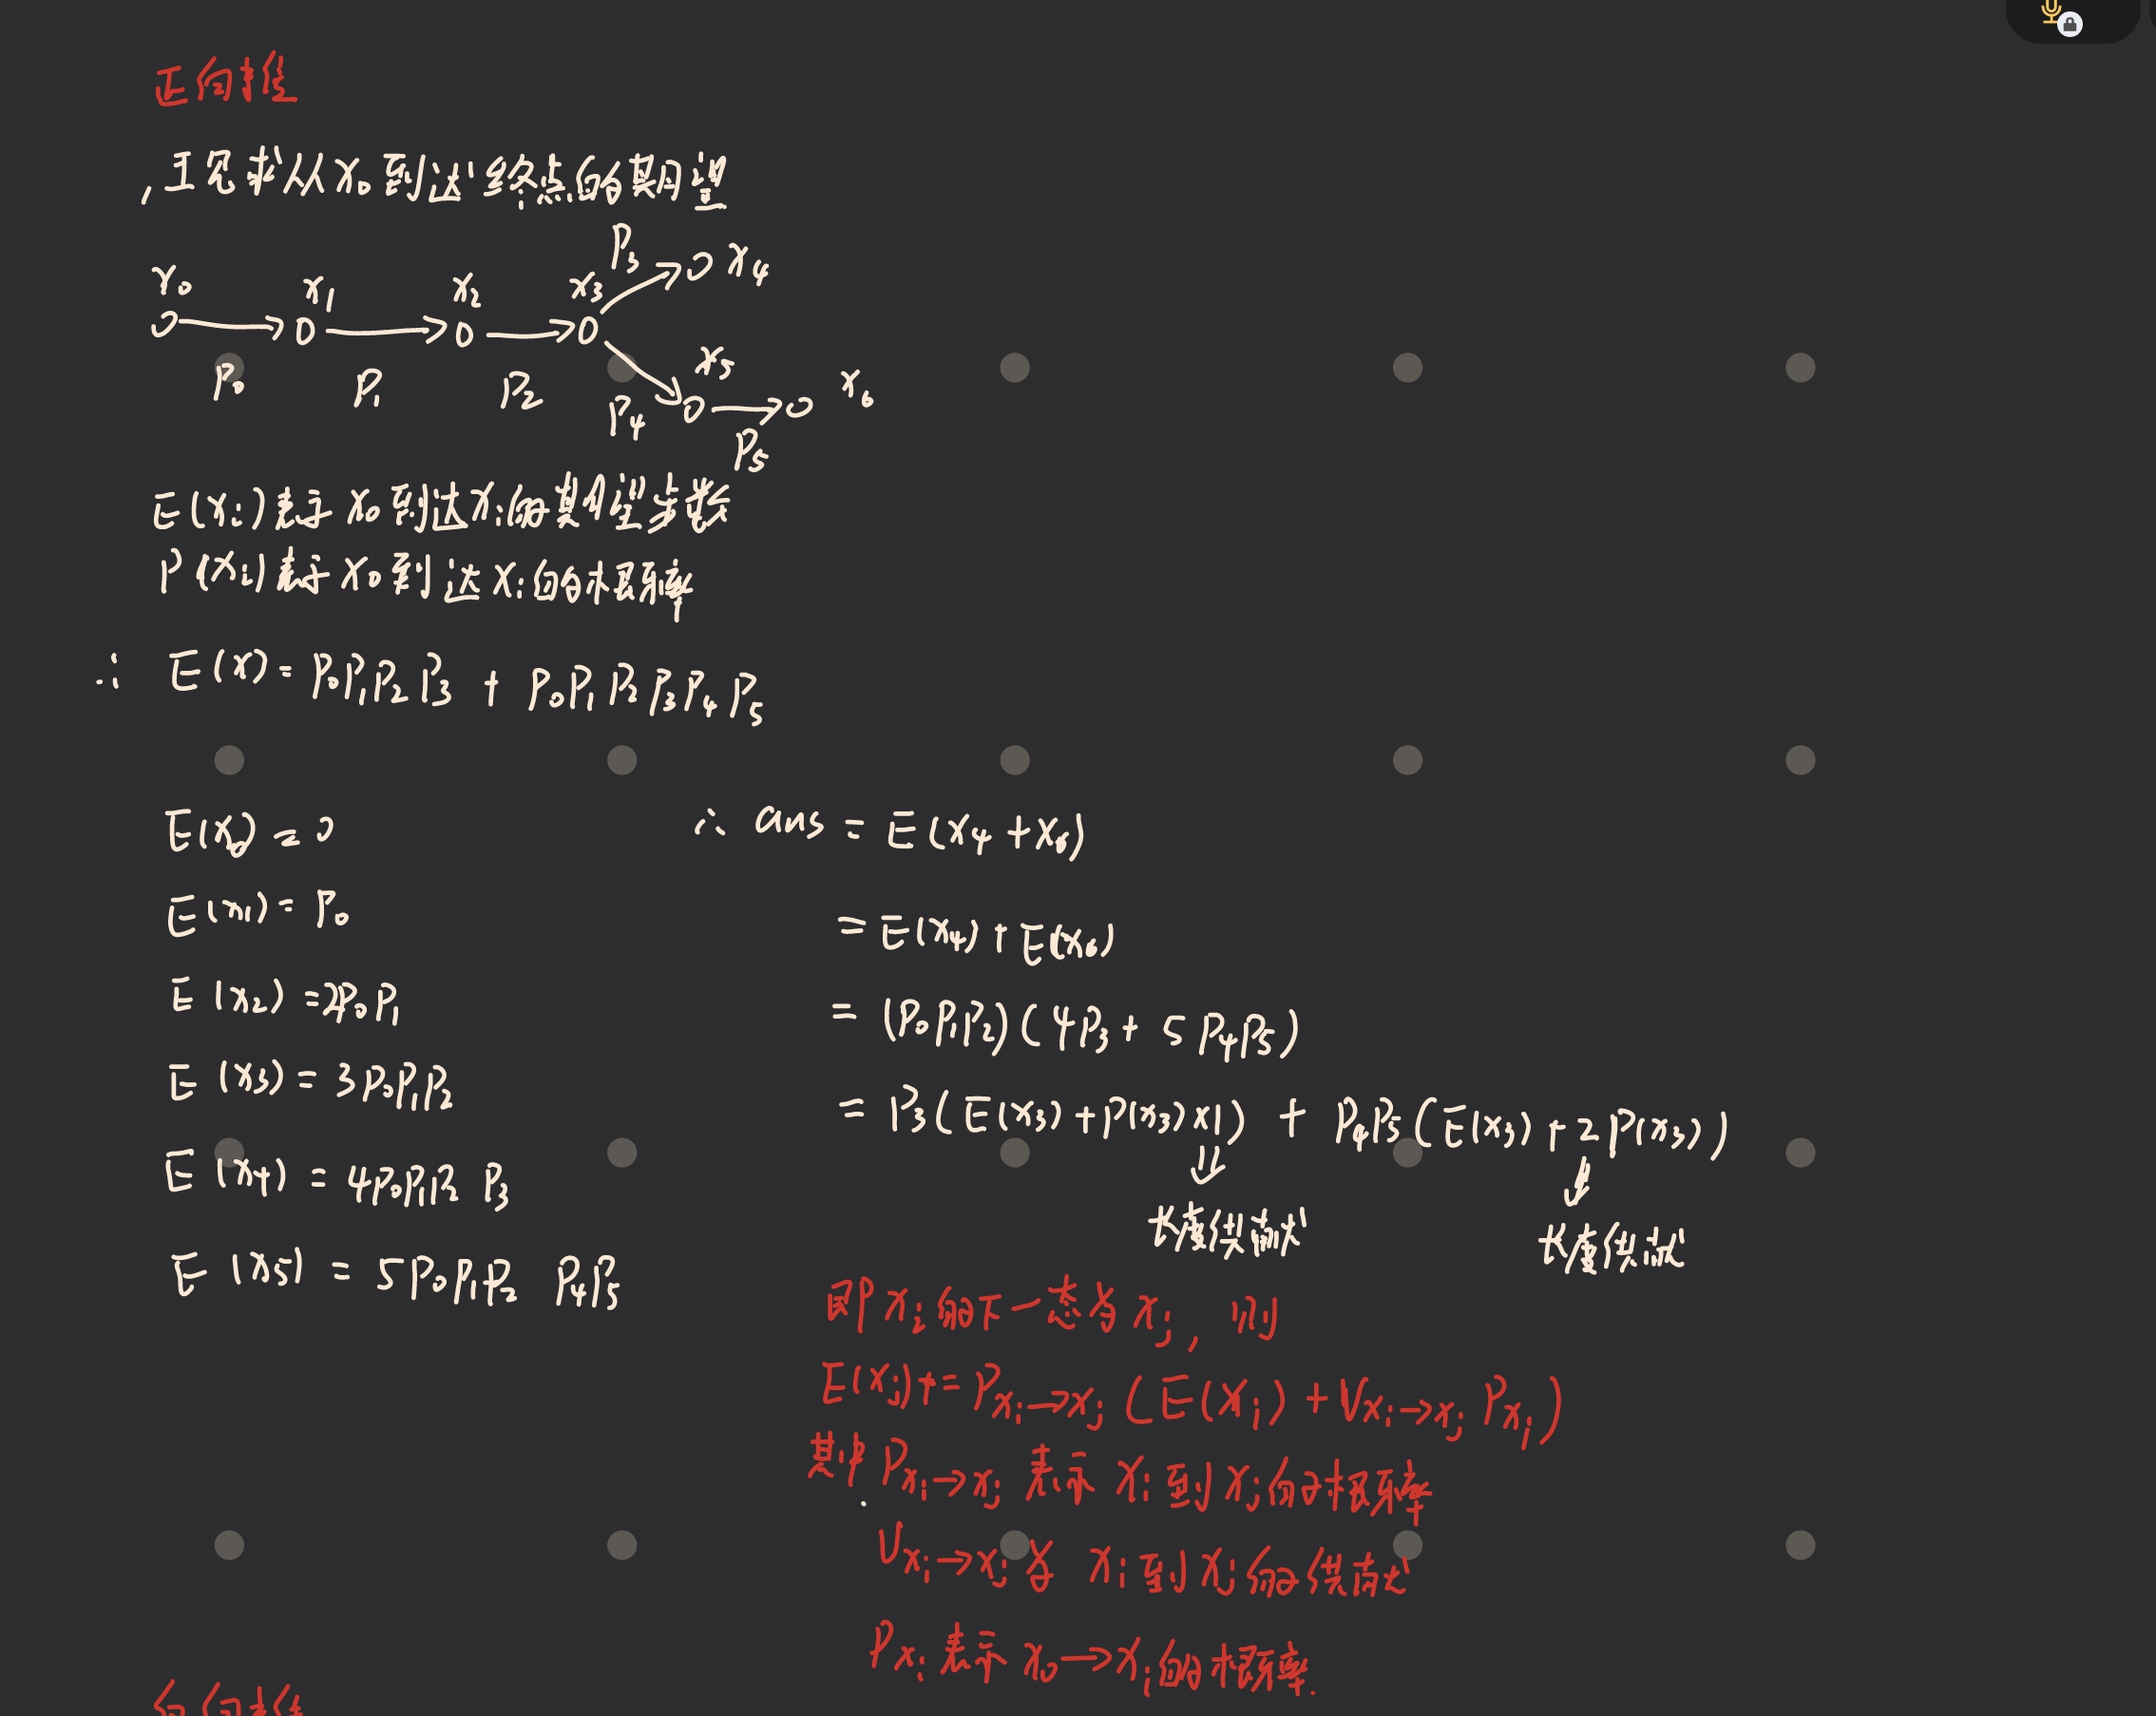 正向推
,正儿求从 X₀ 到达终点的期望
X₀ X₁ X₂ X₃ P₃ X₄
P₀ P₁ P₂ P₄ X₅ X₆
P₅
E(Xᵢ)表示 X₀ 到达 Xᵢ的期望步数
P(Xᵢ)表示 X₀ 到达 Xᵢ的概率
∴ E(X)= P₀P₁P₂P₃ + P₀P₁P₂P₃P₄P₅
E(X₀) = 0
E(X₁) = P₀
E(X₂) = 2P₀P₁
E(X₃) = 3P₀P₁P₂
E(X₄) = 4P₀P₁P₂ P₃
E(X₅) = 5P₀P₁P₂ P₄P₅
∴ ans = E(X₄+X₆)
= E(X₄) + E(X₆)
= (P₀P₁P₂)(4P₃ + 5P₄P₅)
= P₃(E(X₃)+P(X₃)×1) + P₄P₅(E(X₃)+2P(X₃))
长度贡献 长度贡献
即 Xᵢ的下一态为 Xⱼ, 则
E(Xⱼ)+= P Xᵢ→Xⱼ (E(Xᵢ) + V Xᵢ→Xⱼ P Xᵢ)
其中 P Xᵢ→Xⱼ 表示 Xᵢ 到 Xⱼ的概率
V Xᵢ→Xⱼ 为 Xᵢ 到 Xⱼ的贡献
P Xᵢ 表示 X₀→Xᵢ的概率.